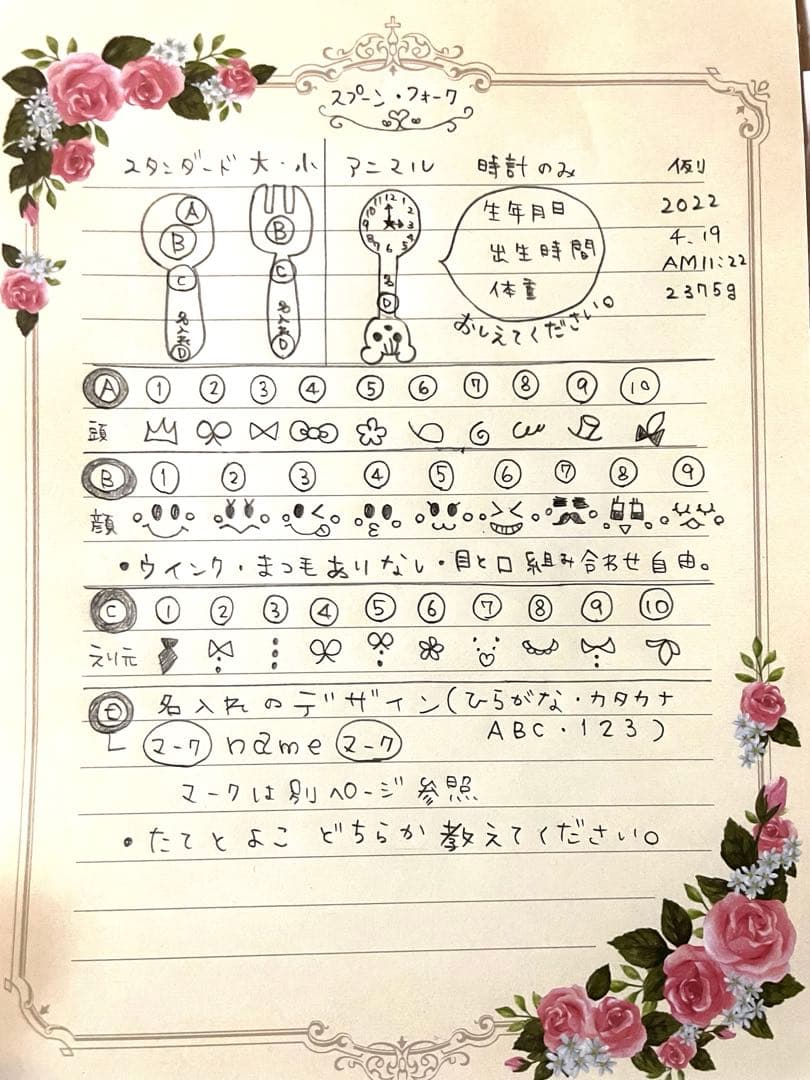 スプーン・フォーク
スタンダード 大・小 アニマル 時計のみ 仮り
A B C 名入れ D
B C 名入れ D
12 1 2 3 4 5 6 7 8 9 10 11
名 D
生年月日
出生時間
体重
おしえてください。
2022
4.19
AM11:22
2375g
A ① ② ③ ④ ⑤ ⑥ ⑦ ⑧ ⑨ ⑩
頭
B ① ② ③ ④ ⑤ ⑥ ⑦ ⑧ ⑨
顔
・ウインク・まつ毛ありなし・目と口組み合わせ自由。
C ① ② ③ ④ ⑤ ⑥ ⑦ ⑧ ⑨ ⑩
えり元
D 名入れのデザイン(ひらがな・カタカナ
ABC・123)
マーク name マーク
マークは別ページ参照
・たてとよこ どちらか教えてください。